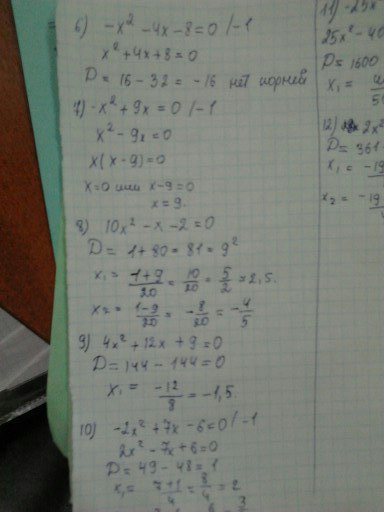 6) -x² -4x -8 = 0 /-1
x² + 4x + 8 = 0
D = 16 - 32 = -16 нет корней
7) -x² + 9x = 0 /-1
x² - 9x = 0
x(x-9) = 0
x=0 или x-9=0
x = 9.
8) 10x² - x - 2 = 0
D = 1+80 = 81 = 9²
x₁ = 1+9/20 = 10/20 = 5/2 = 2,5.
x₂ = 1-9/20 = -8/20 = -4/5
9) 4x² + 12x + 9 = 0
D = 144 - 144 = 0
x₁ = -12/8 = -1,5.
10) -2x² + 7x - 6 = 0 /-1
2x² - 7x + 6 = 0
D = 49 - 48 = 1
x₁ = 7+1/4 = 8/4 = 2
11) -25x
25x² - 40
D = 1600
x₁ =
12) 2x²
D = 361
x₁ = -19
x₂ = -19